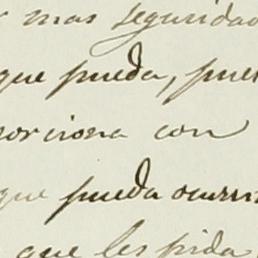 mas seguridad
que pueda, pues
orciona con
que pueda ocurri
que les pida